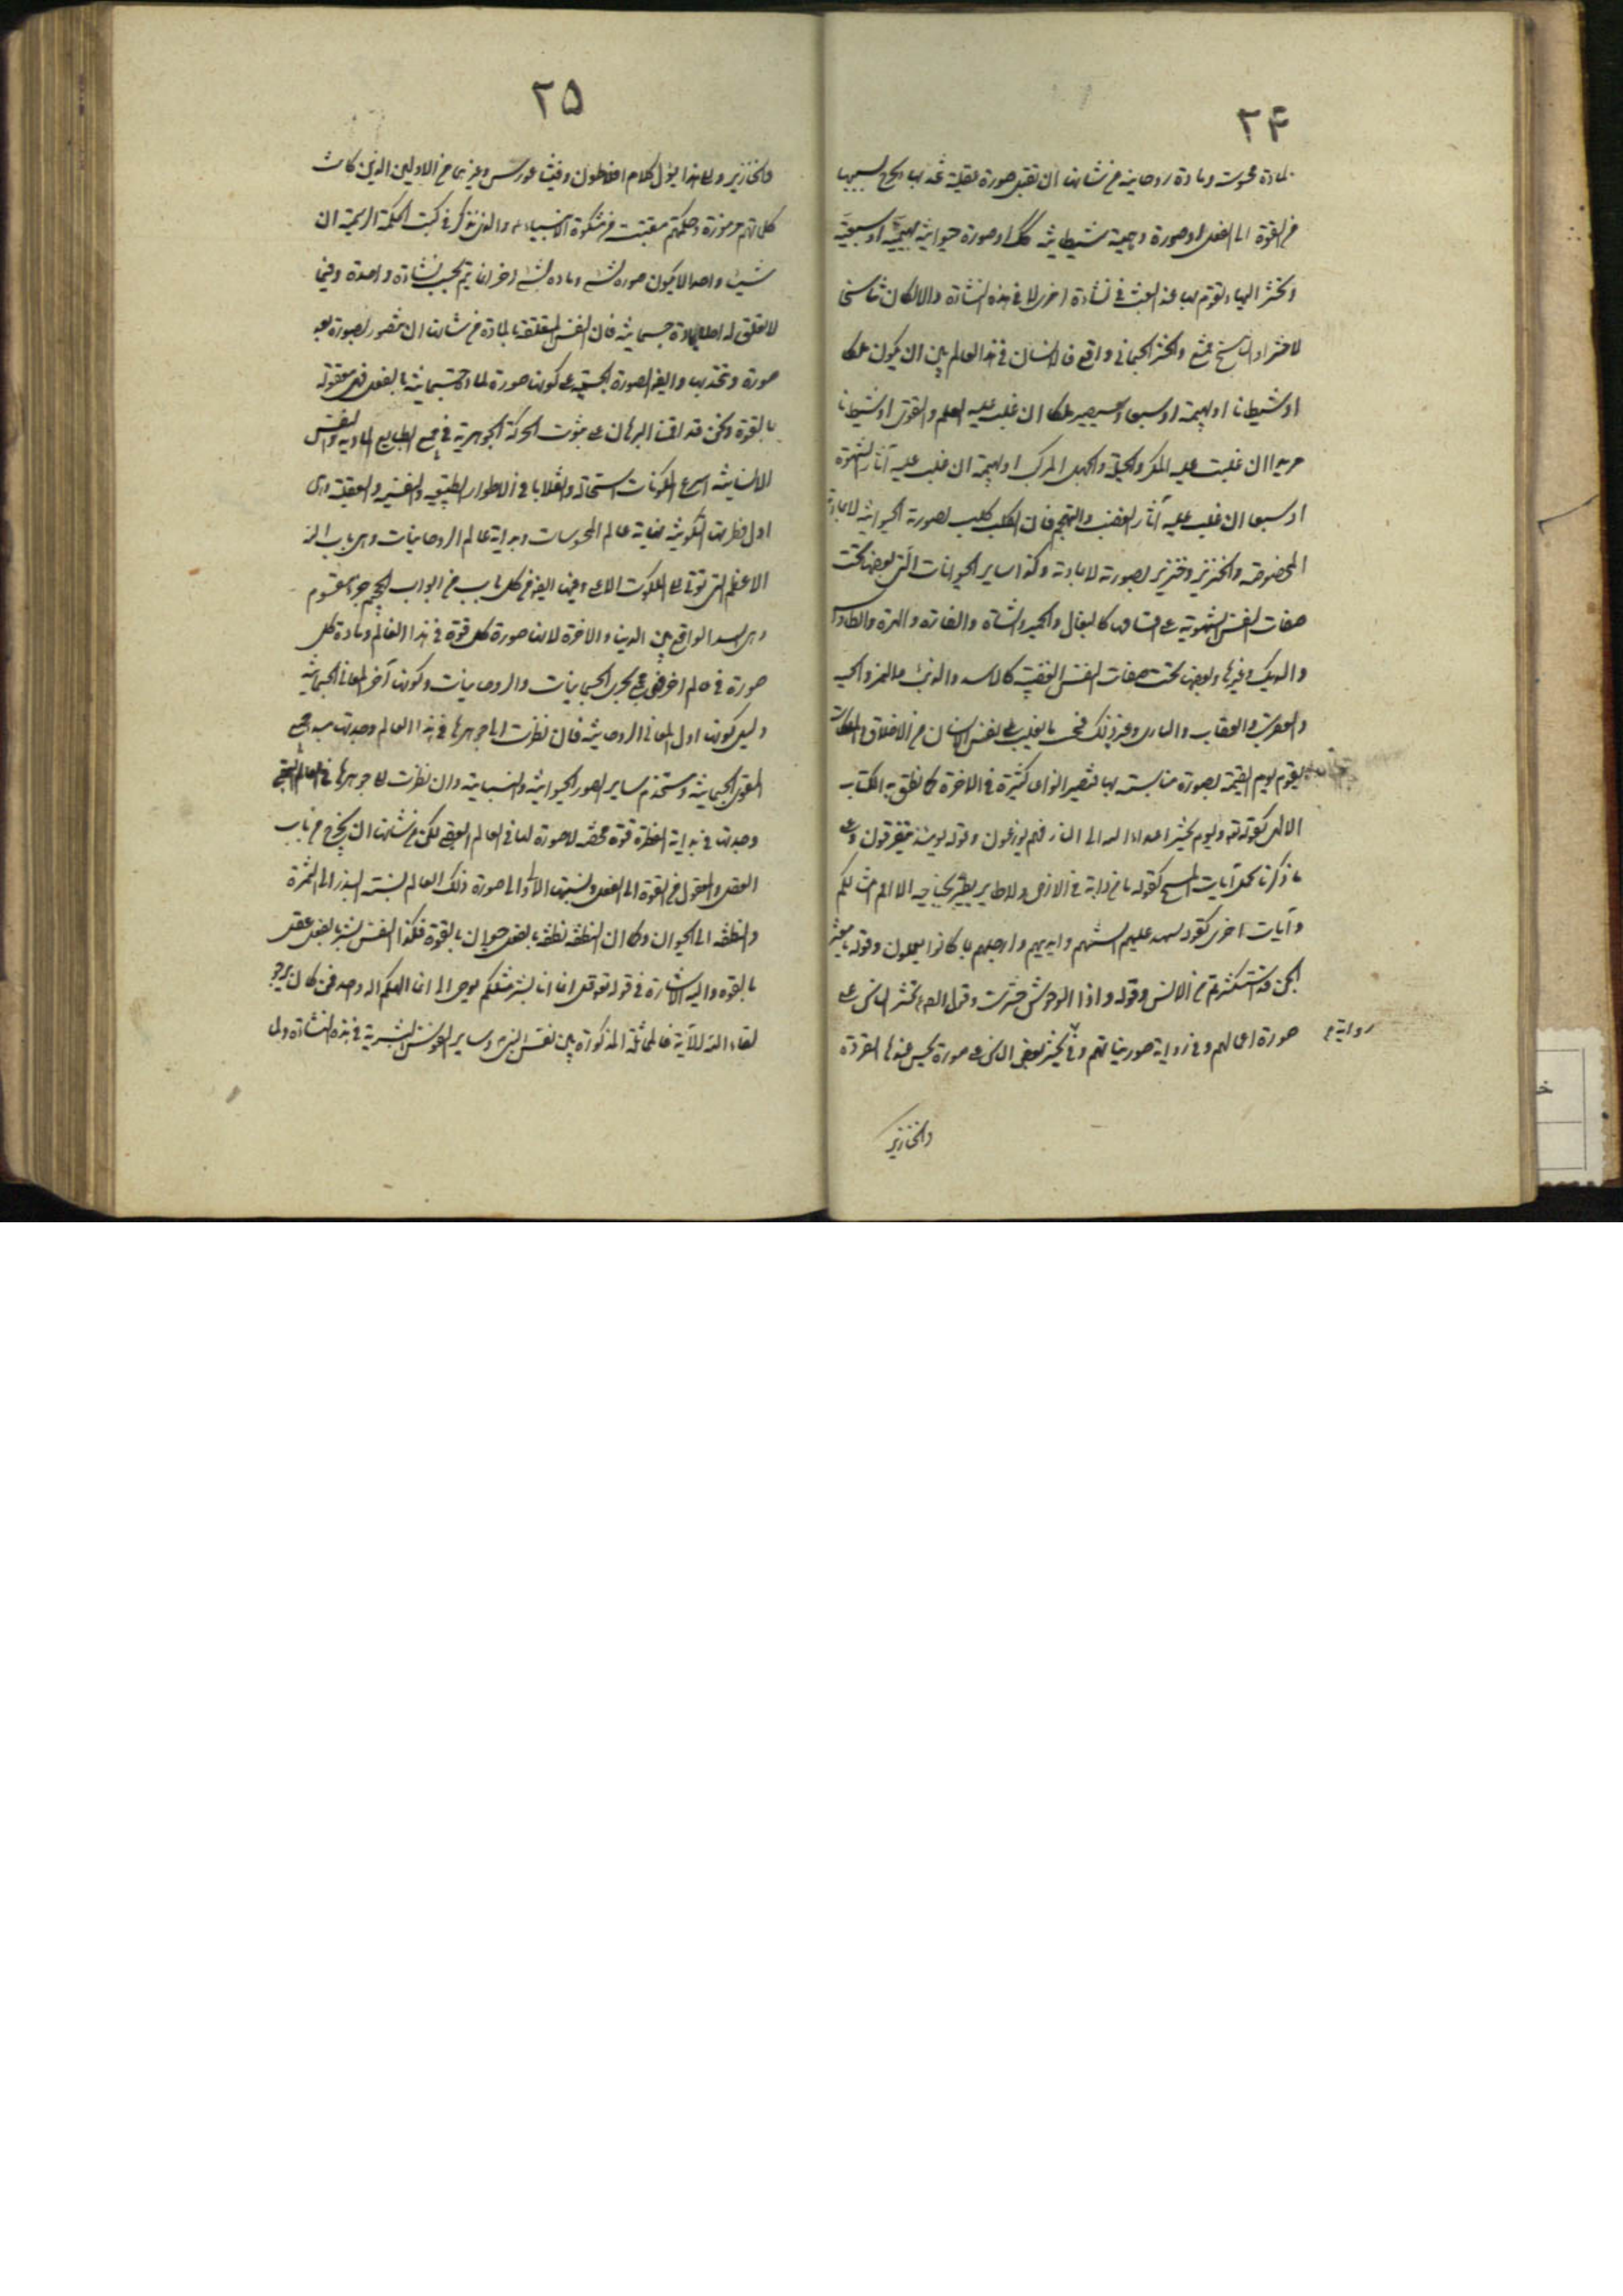 ٢۴
لمادة محسوسة ومادة روحانية من شانها ان تقبل صورة عقلية تتحد بها ويخرج بسببها
من القوة الى الفعل او صورة وهمية شيطانية كك او صورة حيوانية بهيمية او سبعية
وتحشر اليها وتقوم بها عند البعث في نشأة اخرى لا في هذه النشأة والا لكان تناسخا
لا حشرا والتناسخ ممتنع والحشر الجسماني واقع فالانسان في هذا العالم بين ان يكون ملكا
او شيطانا او بهيمة او سبعا ويصير ملكا ان غلب عليه العلم والتقوى او شيطانا
مريدا ان غلبت عليه المكر والحيلة والجهل المركب او بهيمة ان غلب عليه آثار الشهوة
او سبعا ان غلب عليه آثار الغضب والتهجم فان الكلب كلب بصورته الحيوانية لا بمادته
المخصوصة والخنزير خنزير بصورته لا بمادته وكذا ساير الحيوانات التي بعضها تحت
صفات النفس الشهوية على اقسامها كالبغال والحمير والشاة والفارة والهرة والطاوس
والديك وغيرها وبعضها تحت صفات النفس الغضبية كالاسد والذئب والنمر والحية
والعقرب والعقاب والبازي وغير ذلك فبحسب ما يغلب على نفس الانسان من الاخلاق والملكات
يقوم يوم القيمة بصورة مناسبة لها فيصير انواعا كثيرة في الاخرة كما نطق به الكتاب
الالهي كقوله تعه ويوم يحشر اعداء الله الى النار فهم يوزعون وقوله يومئذ يتفرقون وعلى
ما ذكرنا تحمل آيات المسخ كقوله ما من دابة في الارض ولا طاير يطير بجناحيه الا امم امثالكم
وآيات اخرى كقوله تشهد عليهم السنتهم وايديهم وارجلهم بما كانوا يعملون وقوله يا معشر
الجن قد استكثرتم من الانس وقوله واذا الوحوش حشرت وقوله صلعم يحشر الناس على
صورة اعمالهم وفي رواية صور نياتهم وفي يحشر بعض الناس على صورة يحسن عندها القردة
رواية
والخنازير
٢۵
والخنازير ولهذا يؤل كلام افلاطون وفيثاغورس وغيرهما من الاولين الذين كانت
كلماتهم مرموزة وحكمتهم مقتبسة من مشكوة الانبياء والذي يذكر في كتب الحكمة الرسمية ان
شيئا واحدا لا يكون صورة لشئ ومادة لشئ اخر انما يتم بحسب نشأة واحدة وفيما
لا تعلق له اصلا بمادة جسمانية فان النفس المتعلقة بالمادة من شانها ان تتصور بصورة بعد
صورة وتتحد بها وايضا الصورة الجسمية مع كونها صورة لمادة جسمانية بالفعل فهي معقولة
بالقوة ونحن قد اقمنا البرهان على ثبوت الحركة الجوهرية في جميع الطبايع المادية والنفس
الانسانية اسرع المكونات استحالة وانقلابا في الاطوار الطبيعية والنفسية والعقلية وهي
اول فطرتها التكونية نهاية عالم المحسوسات وبداية عالم الروحانيات وهي باب الله
الاعظم الذي يؤتى الى الملكوت الاعلى وفيها ايضا من كل باب من ابواب الجحيم جزء مقسوم
وهي السد الواقع بين الدنيا والاخرة لانها صورة كل قوة في هذا العالم ومادة كل
صورة في عالم اخر فهي مجمع بحري الجسمانيات والروحانيات وكونها آخر المعاني الجسمانية
دليل كونها اول المعاني الروحانية فان نظرت الى جوهرها في هذا العالم وجدتها مبدء جميع
القوى الجسمانية ومستخدم ساير الصور الحيوانية والنباتية وان نظرت الى جوهرها في العالم العقلي
وجدتها في بداية الفطرة قوة محضة لا صورة لها في العالم العقلي لكن من شانها ان يخرج في باب
العقل والمعقول من القوة الى الفعل ونسبتها الاولى الى صورة ذلك العالم نسبة البذر الى الثمرة
والنطفة الى الحيوان وكما ان النطفة نطفة بالفعل حيوان بالقوة فكذا النفس بشر بالفعل عقل
بالقوة واليه الاشارة في قوله تعه قل انما انا بشر مثلكم يوحى الى انما الهكم اله واحد فمن كان يرجو
لقاء الله الآية فالمماثلة المذكورة بين نفس النبي وساير النفوس البشرية في هذه النشأة ولما